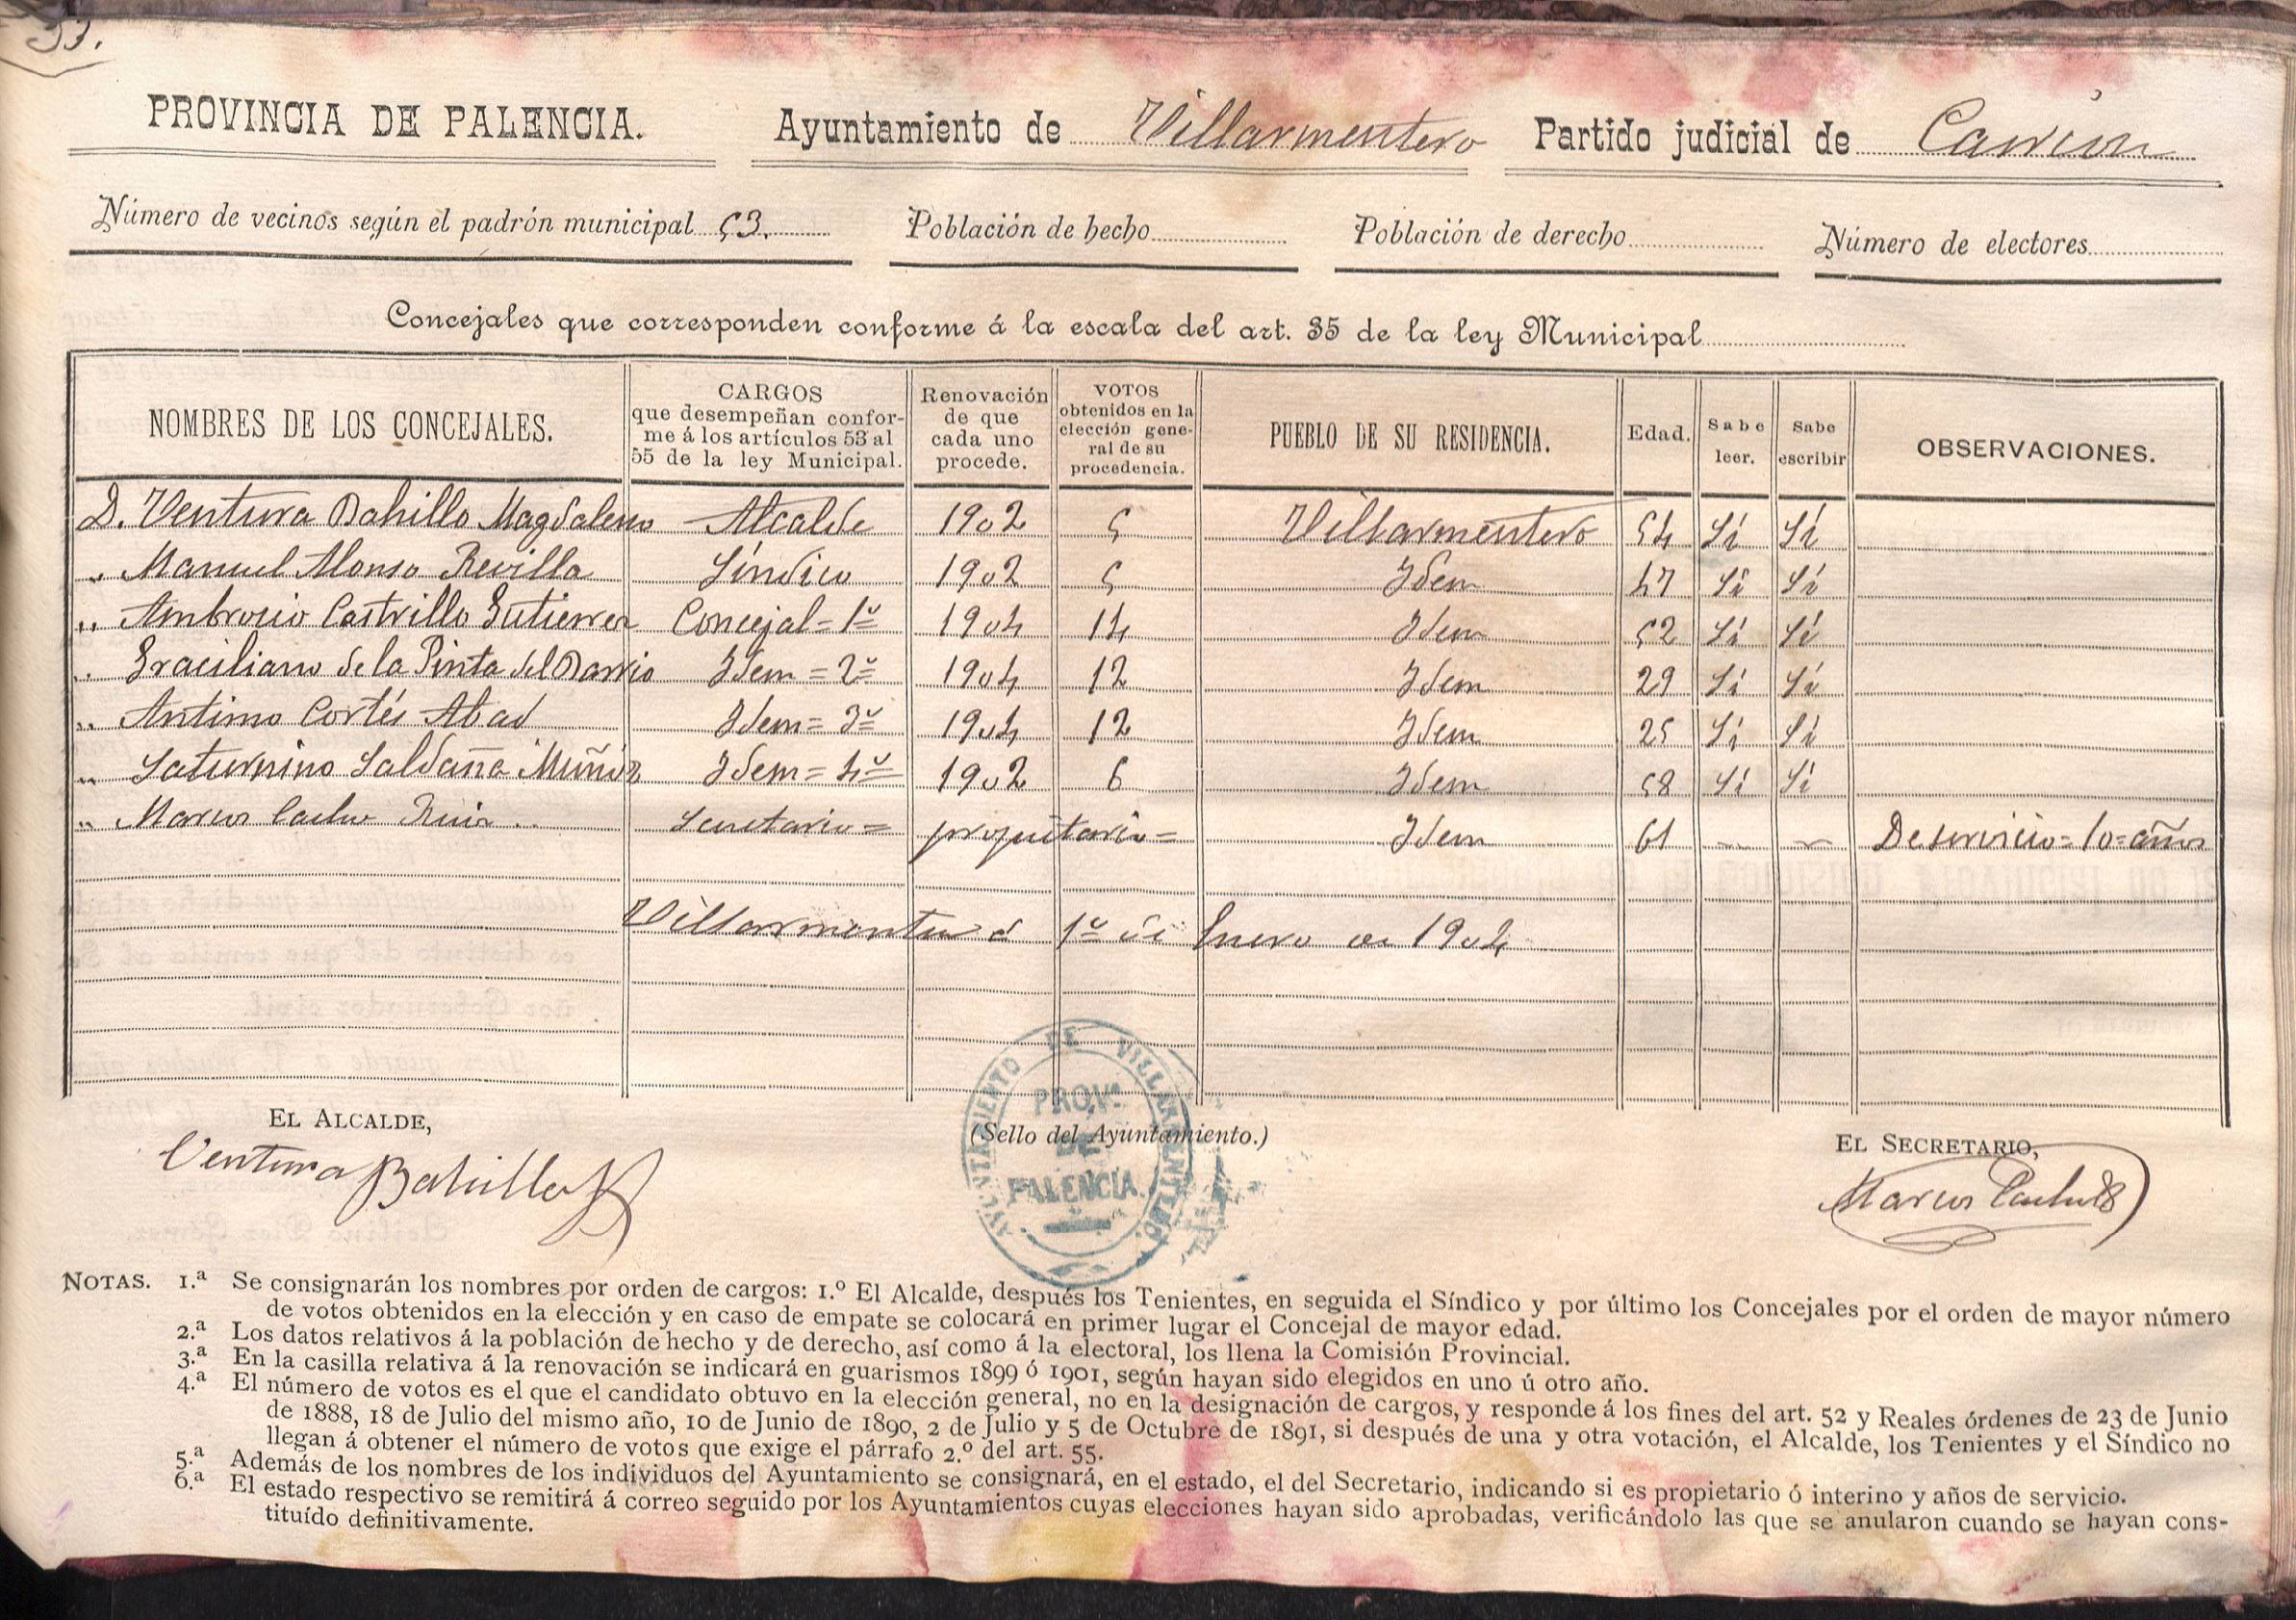 53.
PROVINCIA DE PALENCIA. Ayuntamiento de Villarmentero Partido judicial de Carrión
Número de vecinos según el padrón municipal 53. Población de hecho Población de derecho Número de electores
Concejales que corresponden conforme á la escala del art. 35 de la ley Municipal
NOMBRES DE LOS CONCEJALES. CARGOS que desempeñan confor- me á los artículos 53 al 55 de la ley Municipal. Renovación de que cada uno procede. VOTOS obtenidos en la elección gene- ral de su procedencia. PUEBLO DE SU RESIDENCIA. Edad. Sabe leer. Sabe escribir OBSERVACIONES.
D. Ventura Bahillo Magdaleno Alcalde 1902 5 Villarmentero 54 Sí Sí
" Manuel Alonso Revilla Síndico 1902 5 Idem 47 Sí Sí
" Ambrosio Castrillo Gutierrez Concejal = 1º 1904 14 Idem 52 Sí Sí
" Graciliano de la Pinta del Barrio Idem = 2º 1904 12 Idem 29 Sí Sí
" Antimo Cortés Abad Idem = 3º 1904 12 Idem 25 Sí Sí
" Saturnino Saldaña Muñoz Idem = 4º 1902 6 Idem 58 Sí Sí
" Marcos Ruiz Secretario = propietario = Idem 61 De servicio = 10 = años
Villarmentero á 1º de Enero de 1904
EL ALCALDE,
Ventura Bahillo
(Sello del Ayuntamiento.)
AYUNTAMIENTO DE VILLARMENTERO
PROVª
DE
PALENCIA.
EL SECRETARIO,
Marcos
NOTAS. 1.ª Se consignarán los nombres por orden de cargos: 1.º El Alcalde, después los Tenientes, en seguida el Síndico y por último los Concejales por el orden de mayor número
de votos obtenidos en la elección y en caso de empate se colocará en primer lugar el Concejal de mayor edad.
2.ª Los datos relativos á la población de hecho y de derecho, así como á la electoral, los llena la Comisión Provincial.
3.ª En la casilla relativa á la renovación se indicará en guarismos 1899 ó 1901, según hayan sido elegidos en uno ú otro año.
4.ª El número de votos es el que el candidato obtuvo en la elección general, no en la designación de cargos, y responde á los fines del art. 52 y Reales órdenes de 23 de Junio
de 1888, 18 de Julio del mismo año, 10 de Junio de 1890, 2 de Julio y 5 de Octubre de 1891, si después de una y otra votación, el Alcalde, los Tenientes y el Síndico no
llegan á obtener el número de votos que exige el párrafo 2.º del art. 55.
5.ª Además de los nombres de los individuos del Ayuntamiento se consignará, en el estado, el del Secretario, indicando si es propietario ó interino y años de servicio.
6.ª El estado respectivo se remitirá á correo seguido por los Ayuntamientos cuyas elecciones hayan sido aprobadas, verificándolo las que se anularon cuando se hayan cons-
tituído definitivamente.